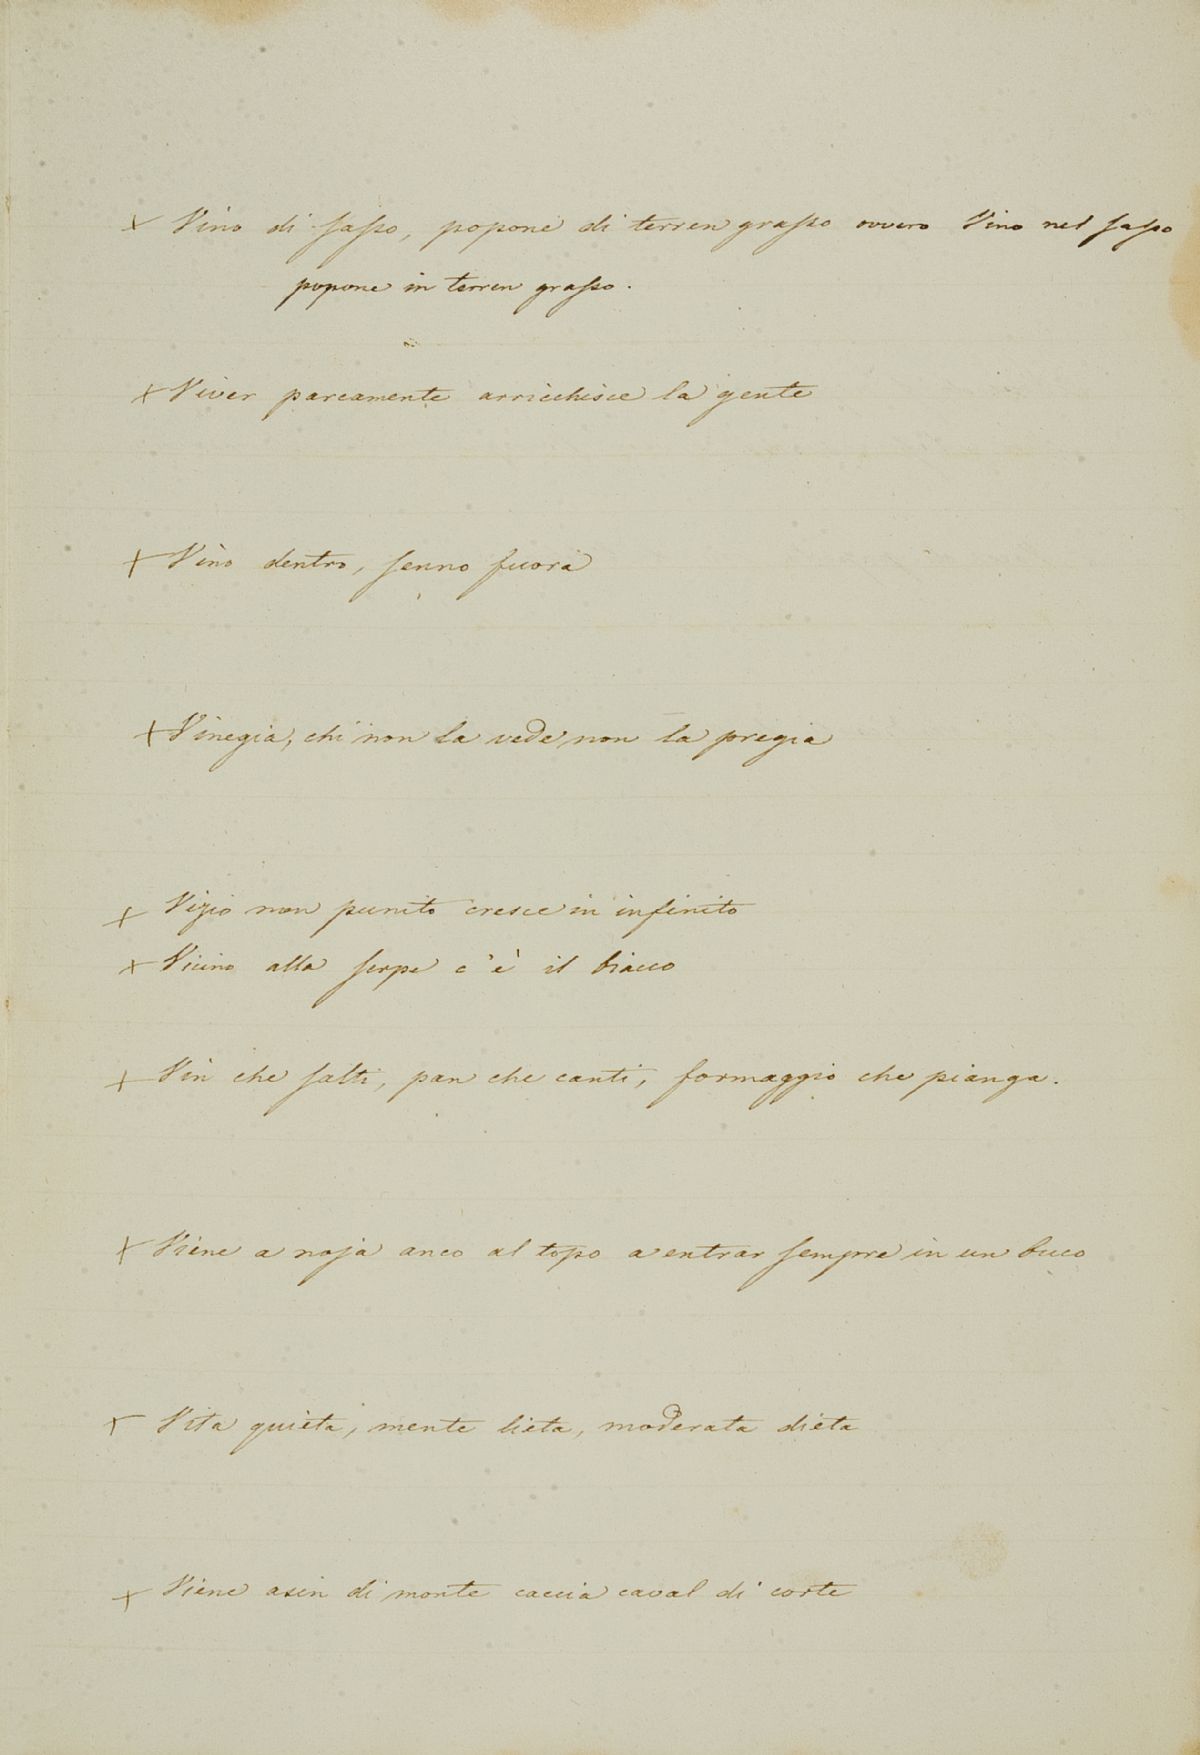 + Vino di sasso, popone di terren grasso ovvero Vino nel sasso
popone in terren grasso.
+ Viver parcamente arricchisce la gente
+ Vino dentro, senno fuora
+ Vinegia, chi non la vede non la pregia
+ Vizio non punito cresce in infinito
+ Vicino alla serpe c'è il biacco
+ Vin che salti, pan che canti, formaggio che pianga.
+ Viene a noja anco al topo a entrar sempre in un buco
+ Vita quieta, mente lieta, moderata dieta
+ Viene asin di monte caccia caval di corte